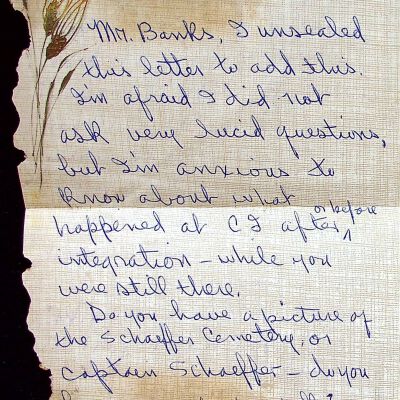 Mr. Banks, I unsealed
this letter to add this.
I'm afraid I did not
ask very lucid questions,
but I'm anxious to
know about what
happened at CI after, or before
integration – while you
were still there.
Do you have a picture of
the Schaeffer Cemetery, or
Captain Schaeffer – do you